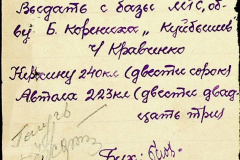 Выдать с базы МТС, об-
ву Б. Корениха „Куйбышев"
ч/ Кравченко
Керосину 240кл (двести сорок)
Автола 223кл (двести двад-
цать три)